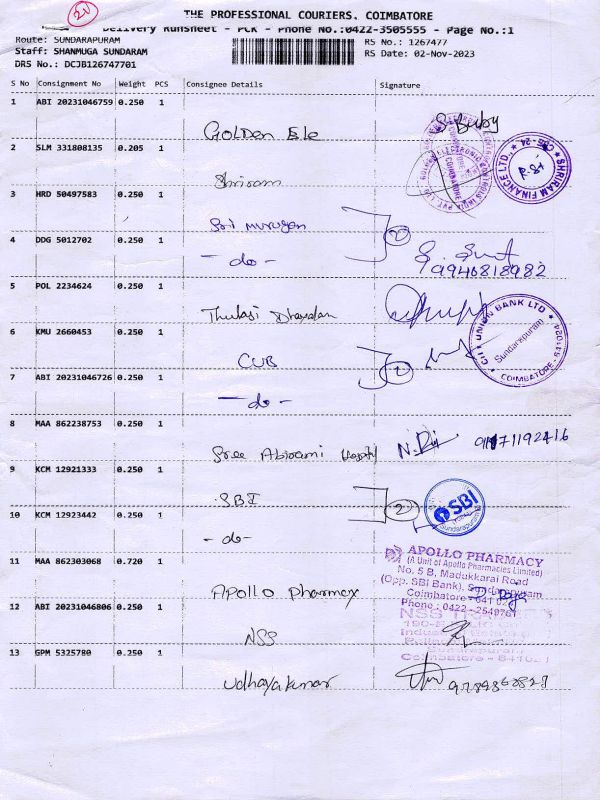 20
THE PROFESSIONAL COURIERS. COIMBATORE
Delivery Runsheet - PCK - Phone No.:0422-3505555 - Page No.:1
Route: SUNDARAPURAM
RS No.: 1267477
Staff: SHANMUGA SUNDARAM
RS Date: 02-Nov-2023
DRS No.: DCJB126747701
S No Consignment No Weight PCS Consignee Details Signature
1 ABI 20231046759 0.250 1
Golden Ele S. Baby
2 SLM 331808135 0.205 1
Shriram
SHRIRAM FINANCE LTD.,
3 HRD 50497583 0.250 1
Sri murugan 2
4 DDG 5012702 0.250 1
- do -
9946818982
5 POL 2234624 0.250 1
Thulasi
6 KMU 2660453 0.250 1
CUB 2
CITY UNION BANK LTD
Sundarapuram
COIMBATORE - 641024
7 ABI 20231046726 0.250 1
- do -
8 MAA 862238753 0.250 1
Sree Abirami
9 KCM 12921333 0.250 1
SBI 2
SBI
Sundarapuram
10 KCM 12923442 0.250 1
- do -
11 MAA 862303068 0.720 1
Apollo pharmacy
APOLLO PHARMACY
(A Unit of Apollo Pharmacies Limited)
No. 5 B, Madukkarai Road
(Opp. SBI Bank), Sundarapuram
Coimbatore - 641 024
Phone : 0422 - 2549761
12 ABI 20231046806 0.250 1
NSS
13 GPM 5325780 0.250 1
Udhayakumar